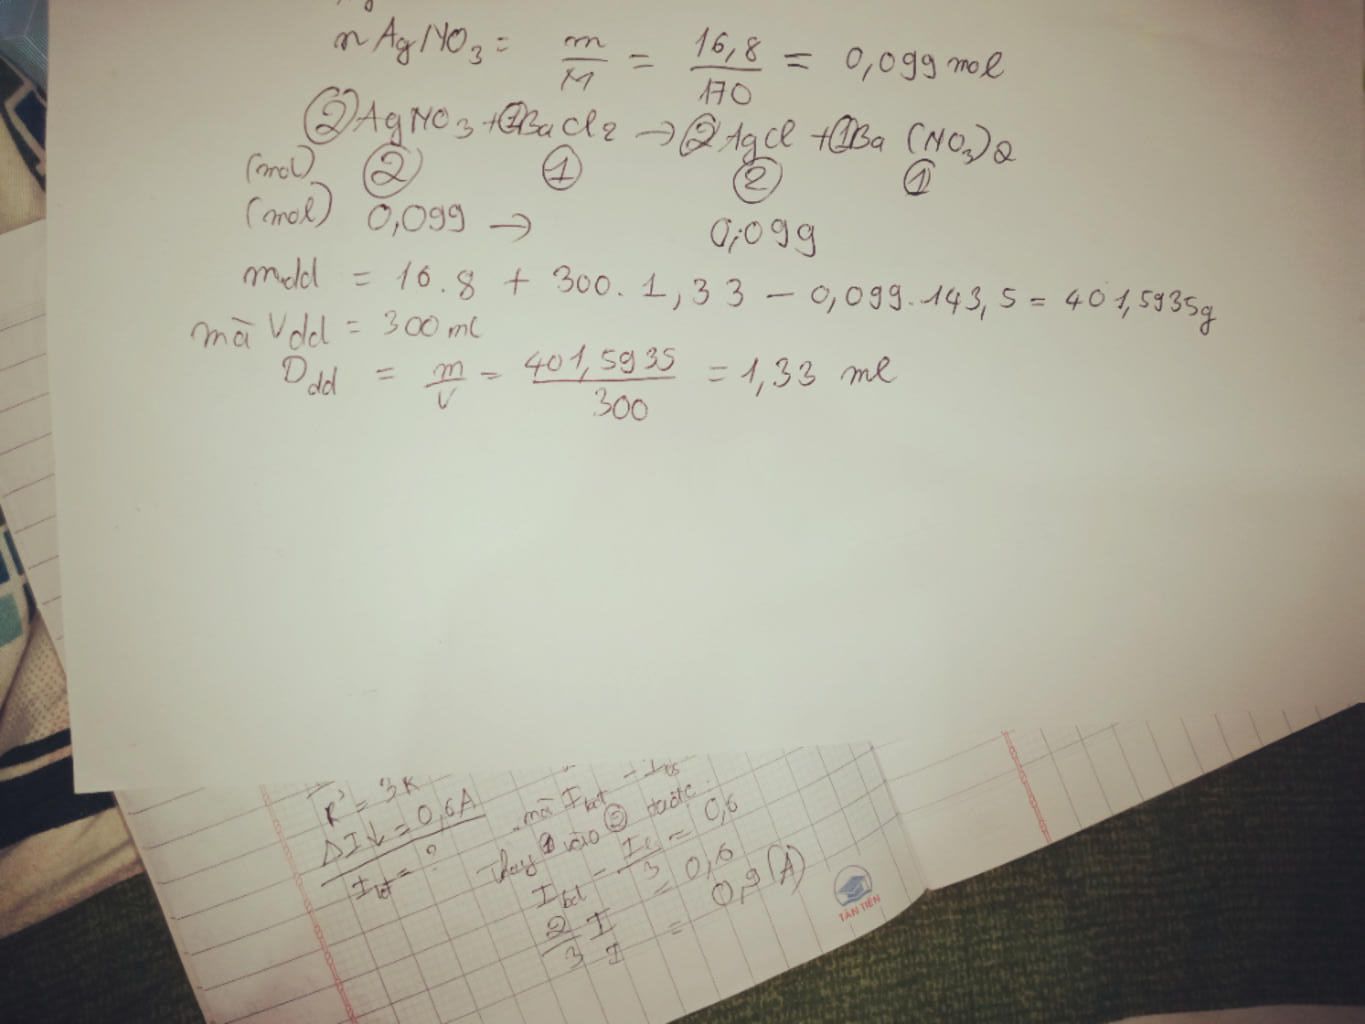 nAgNO3 = m/M = 16,8/170 = 0,099 mol
②AgNO3 + ①BaCl2 → ②AgCl + ①Ba(NO3)2
(mol) ② ① ② ①
(mol) 0,099 → 0,099
mdd = 16.8 + 300. 1,33 - 0,099. 143,5 = 401,5935g
mà Vdd = 300 ml
Ddd = m/V = 401,5935/300 = 1,33 ml
R' = 3R
ΔI↓ = 0,6A
mà Ibđ
Thay ① vào ② được:
= 0,6
2/3 I = 0,6
I = 0,9(A)
TÂN TIẾN